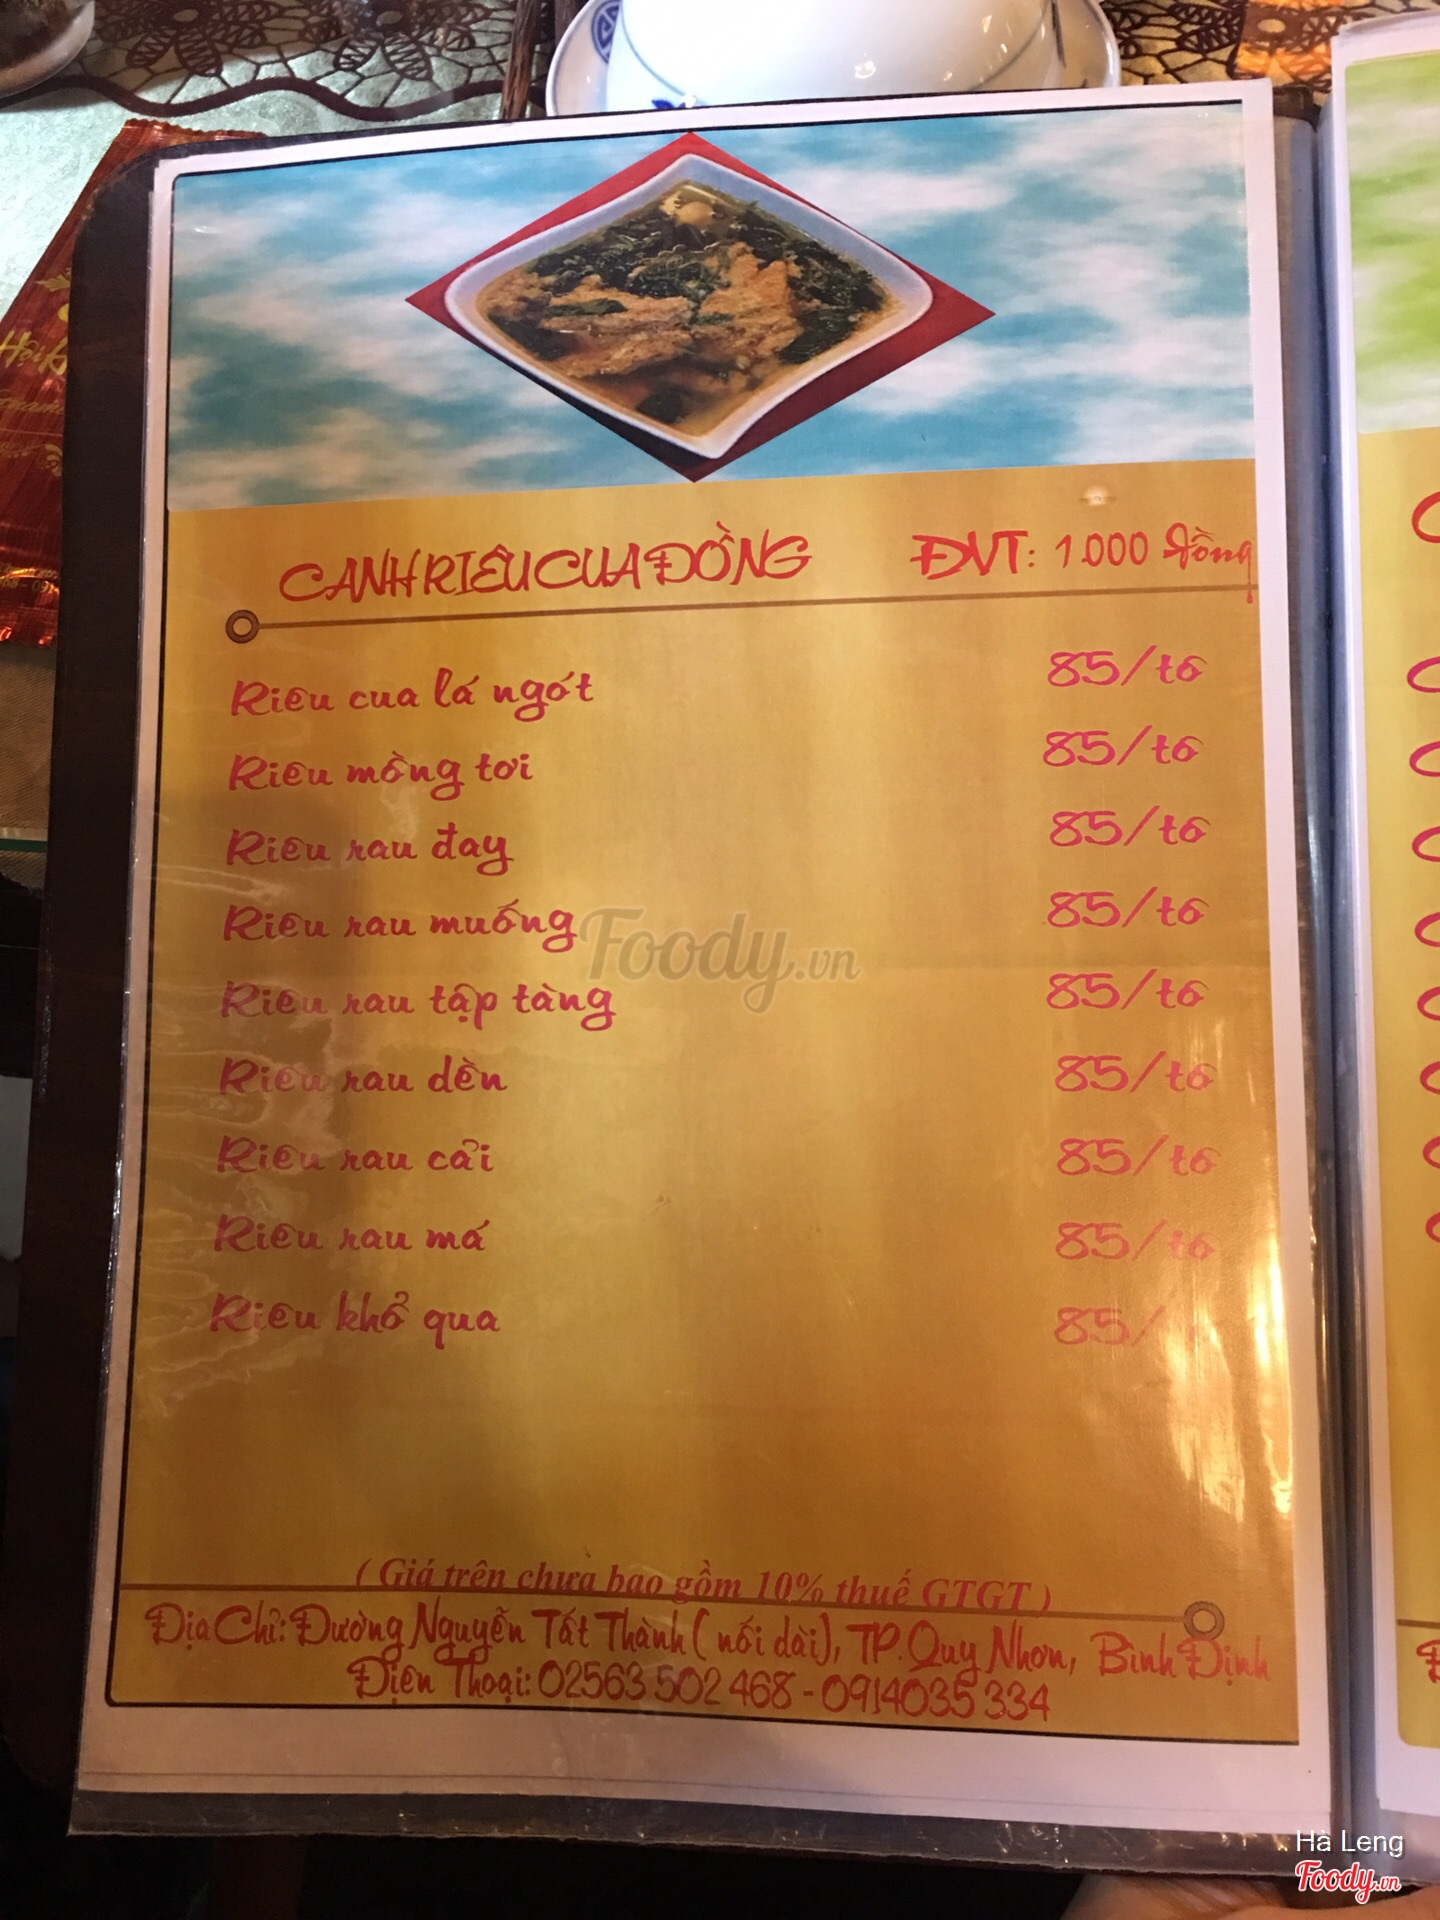 CANH RIÊU CUA ĐỒNG ĐVT: 1.000 đồng
Riêu cua lá ngót 85/tô
Riêu mồng tơi 85/tô
Riêu rau đay 85/tô
Riêu rau muống 85/tô
Riêu rau tập tàng 85/tô
Riêu rau dền 85/tô
Riêu rau cải 85/tô
Riêu rau má 85/tô
Riêu khổ qua 85/
Foody.vn
( Giá trên chưa bao gồm 10% thuế GTGT )
Địa Chỉ: Đường Nguyễn Tất Thành ( nối dài), TP. Quy Nhơn, Bình Định
Điện Thoại: 02563 502 468 - 0914035 334
Hà Leng
Foody.vn